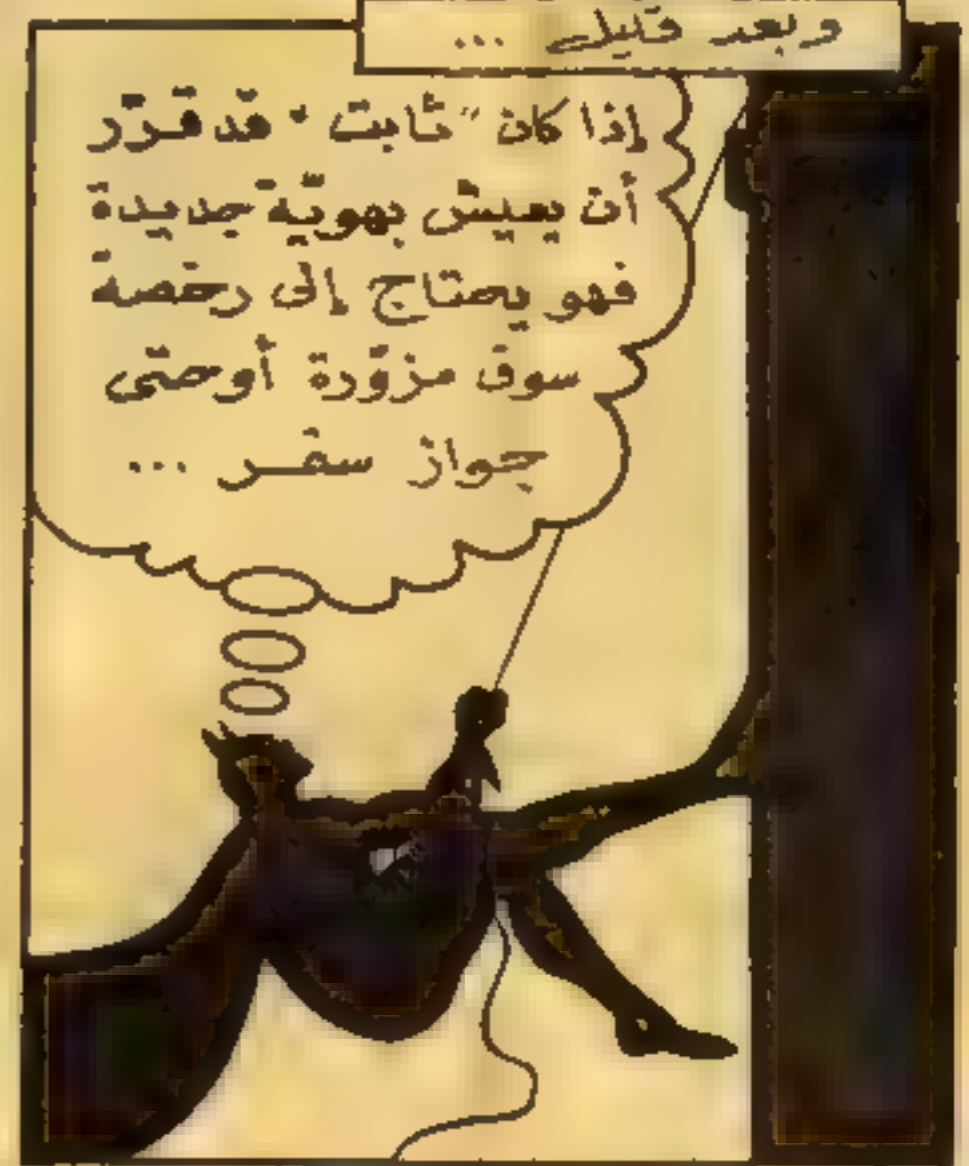 وبعد قليل ...
إذا كان "ثابت" قد قرّر
أن يعيش بهويّة جديدة
فهو يحتاج إلى رخصة
سوق مزوّرة أو حتّى
جواز سفر ...